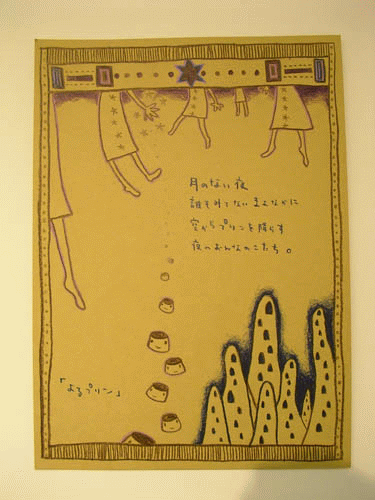 月のない夜
誰も外でないまよなかに
空からプリンを降らす
夜のおんなのこたち。
「よるプリン」